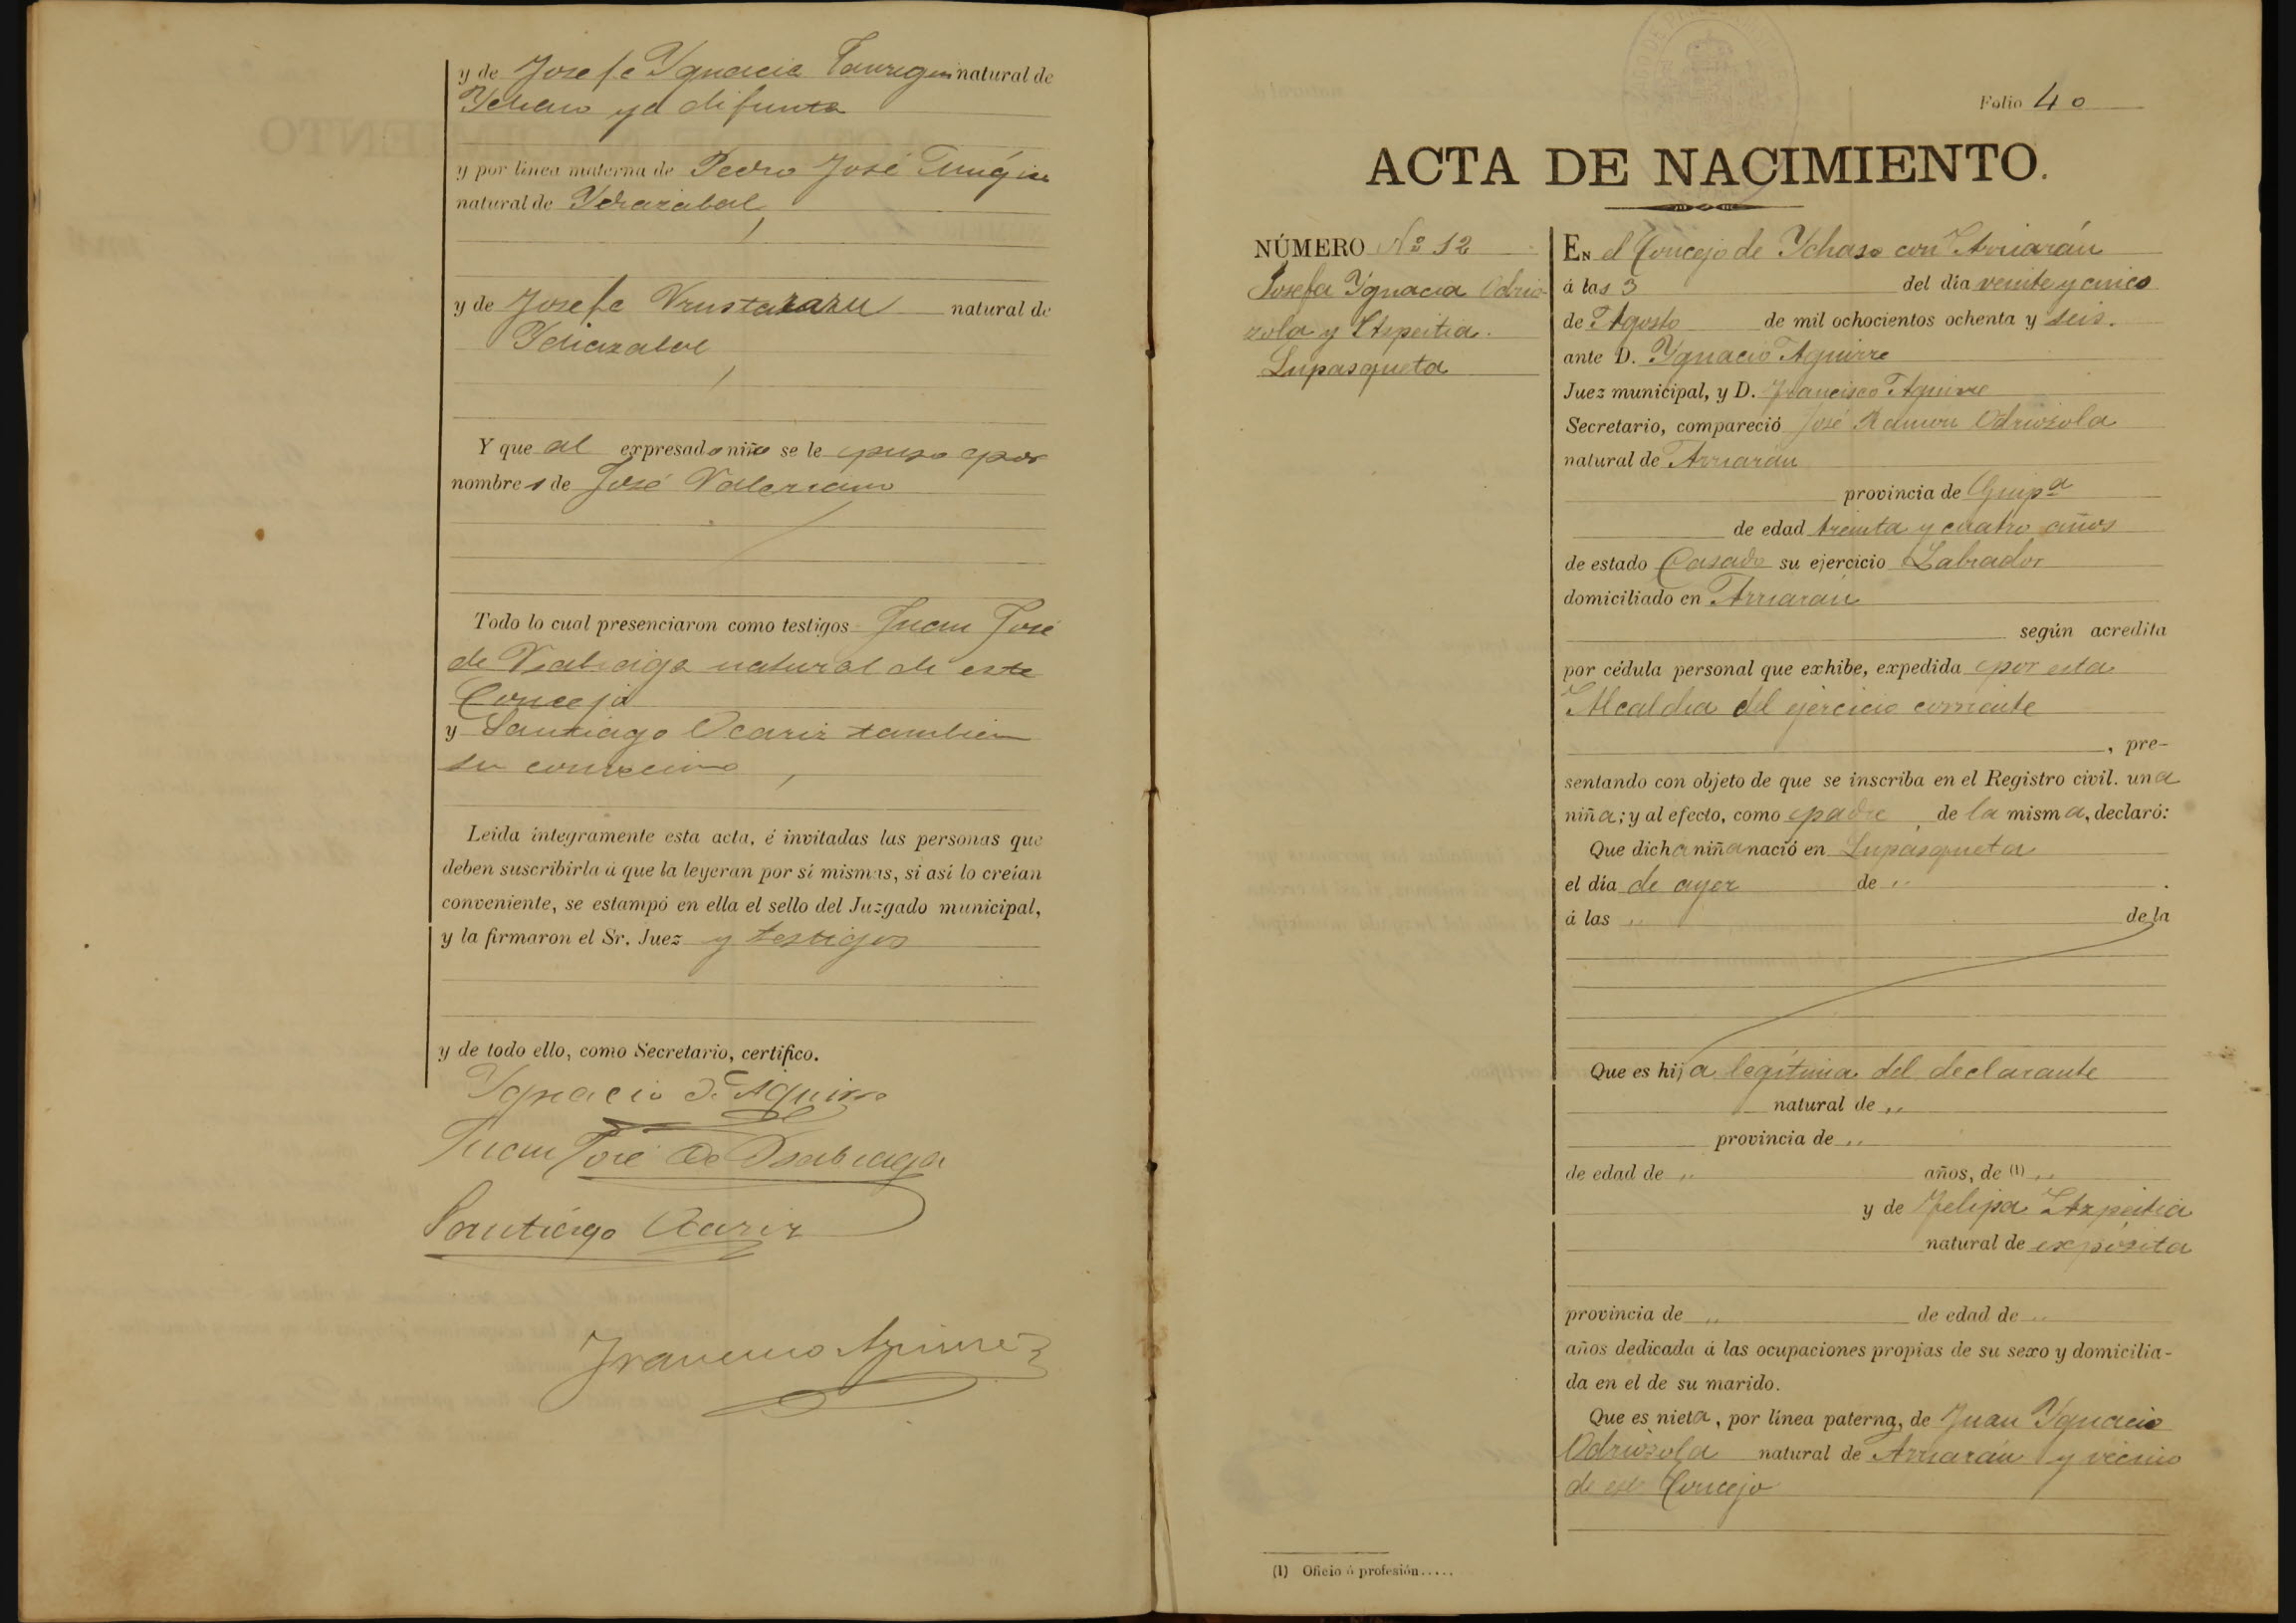 y de Josefa Ygnacia Tauregui natural de
Ychaso ya difunta
y por línea materna de Pedro José
natural de Ydiazabal
y de Josefa Vrustarazu natural de
Ydiazabal
Y que al expresado niño se le puso por
nombres de José Valeriano
Todo lo cual presenciaron como testigos Juan José
de Vsabiaga natural de este
Concejo
y Santiago Ocariz tambien
su convecino
Leida íntegramente esta acta, é invitadas las personas que
deben suscribirla á que la leyeran por sí mismas, si así lo creían
conveniente, se estampó en ella el sello del Juzgado municipal,
y la firmaron el Sr. Juez y testigos
y de todo ello, como Secretario, certifico.
Ygnacio de Aguirre
Juan José de Vsabiaga
Santiago Ocariz
Francisco Aguirre
Folio 40
ACTA DE NACIMIENTO.
NÚMERO Nº 12
Josefa Ygnacia Odrio
zola y Azpeitia.
Lupasqueta
EN el Concejo de Ychaso con Arriarán
á las 3 del día veinte y cinco
de Agosto de mil ochocientos ochenta y seis.
ante D. Ygnacio Aguirre
Juez municipal, y D. Francisco Aguirre
Secretario, compareció José Ramon Odriozola
natural de Arriarán
provincia de Guipª
de edad treinta y cuatro años
de estado Casado su ejercicio Labrador
domiciliado en Arriarán
según acredita
por cédula personal que exhibe, expedida por esta
Alcaldia del ejercicio corriente
, pre-
sentando con objeto de que se inscriba en el Registro civil. una
niña; y al efecto, como padre de la misma, declaró:
Que dicha niña nació en Lupasqueta
el día de ayer de „ .
á las „ de la
Que es hija legítima del declarante
natural de „
provincia de „
de edad de „ años, de (1) „
y de Felipa Azpeitia
natural de expósita
provincia de „ de edad de „
años dedicada á las ocupaciones propias de su sexo y domicilia-
da en el de su marido.
Que es nieta, por línea paterna, de Juan Ygnacio
Odriozola natural de Arriarán y vecino
de este Concejo
(1) Oficio ó profesión.....